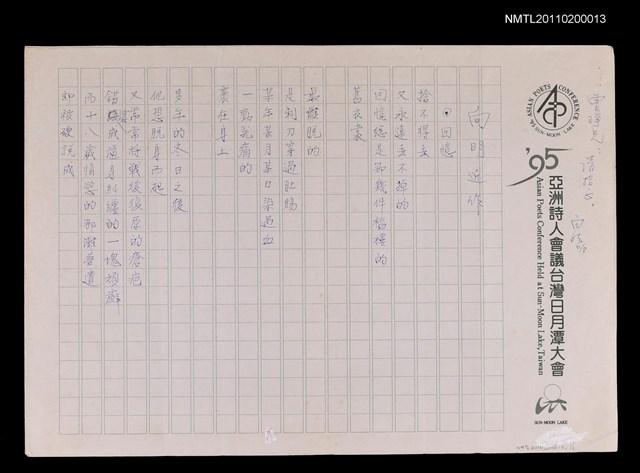 NMTL20110200013
ASIAN POETS CONFERENCE
'95 SUN-MOON LAKE
'95 亞洲詩人會議台灣日月潭大會
Asian Poets Conference Held at Sun-Moon Lake, Taiwan
SUN-MOON LAKE
請指正
向明
向明近作
回憶
捨不得丟
又永遠丟不掉的
回憶總是那幾件襤褸的
舊衣裳
最難脫的
是刺刀穿過肚腸
某年某月某日染過血
一點就痛的
裹在身上
多年的冬日之後
他想脫身而起
又常常將戰後復原的瘡疤
錯成滿身糾纏的一塊頑癬
而十八歲情愁的那灘愛遺
如被硬說成